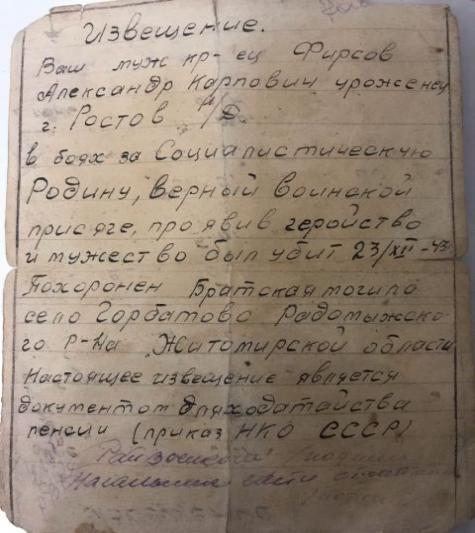 Извещение.
Ваш муж кр-ец Фирсов
Александр Карпович уроженец
г. Ростов н/Д.
в боях за Социалистическую
Родину, верный воинской
присяге, проявив геройство
и мужество был убит 23/XII-43
Похоронен Братская могила
село Горбатово Радомыжско-
го р-на Житомирской области
Настоящее извещение является
документом для ходатайства
пенсии (приказ НКО СССР)
Райвоенком
Начальник части